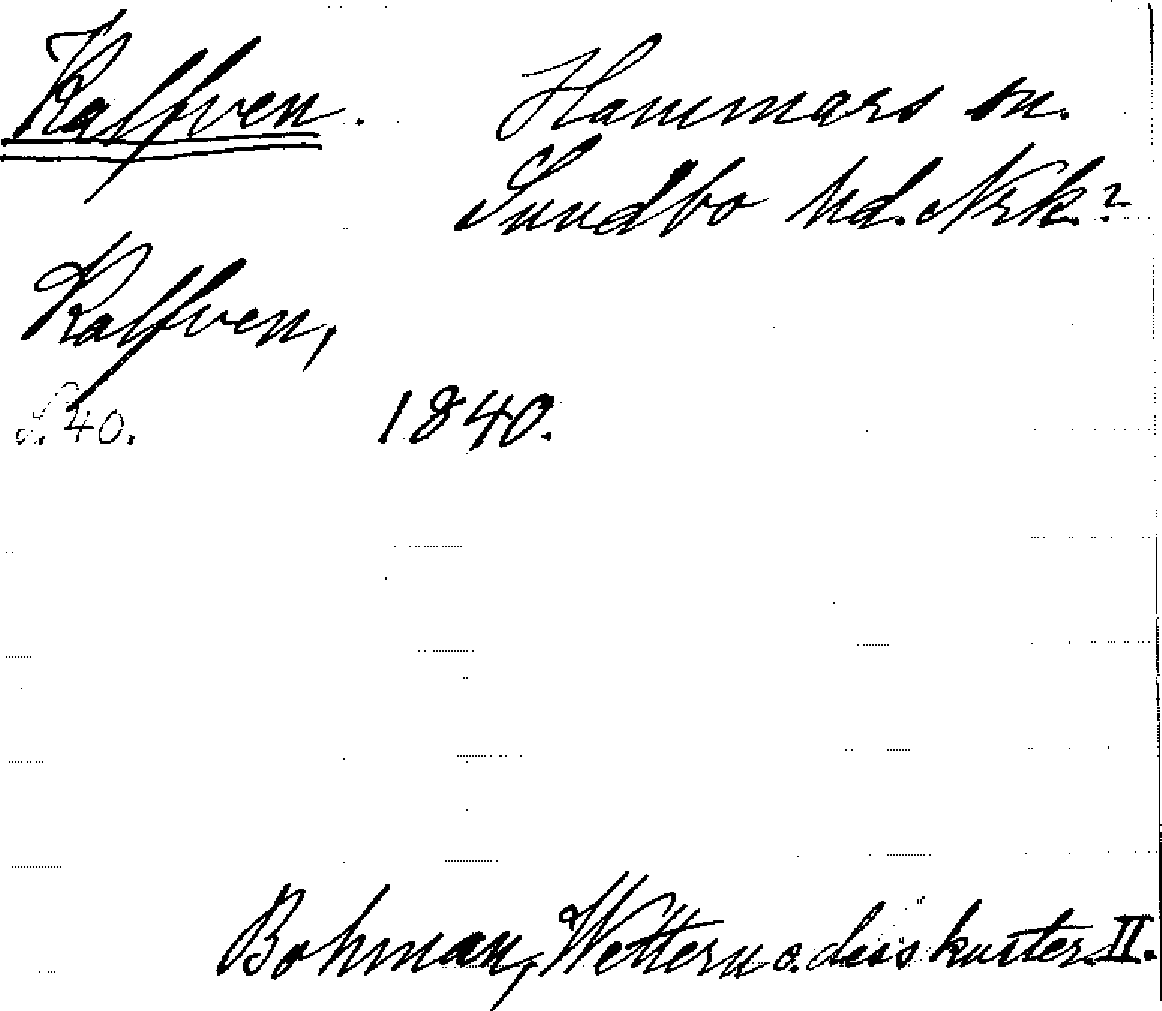 Kalfven. Hammars sn.
Sundbo hd. Nrk.?
Kalfven,
S. 40. 1840.
Bohman, Wettern o. dess kuster. II.